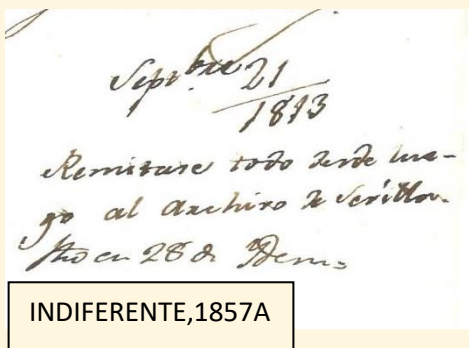 Septbre 21
1813
Remitase todo desde lue-
go al Archivo de Sevilla.
fho en 28 de Idem.
INDIFERENTE,1857A